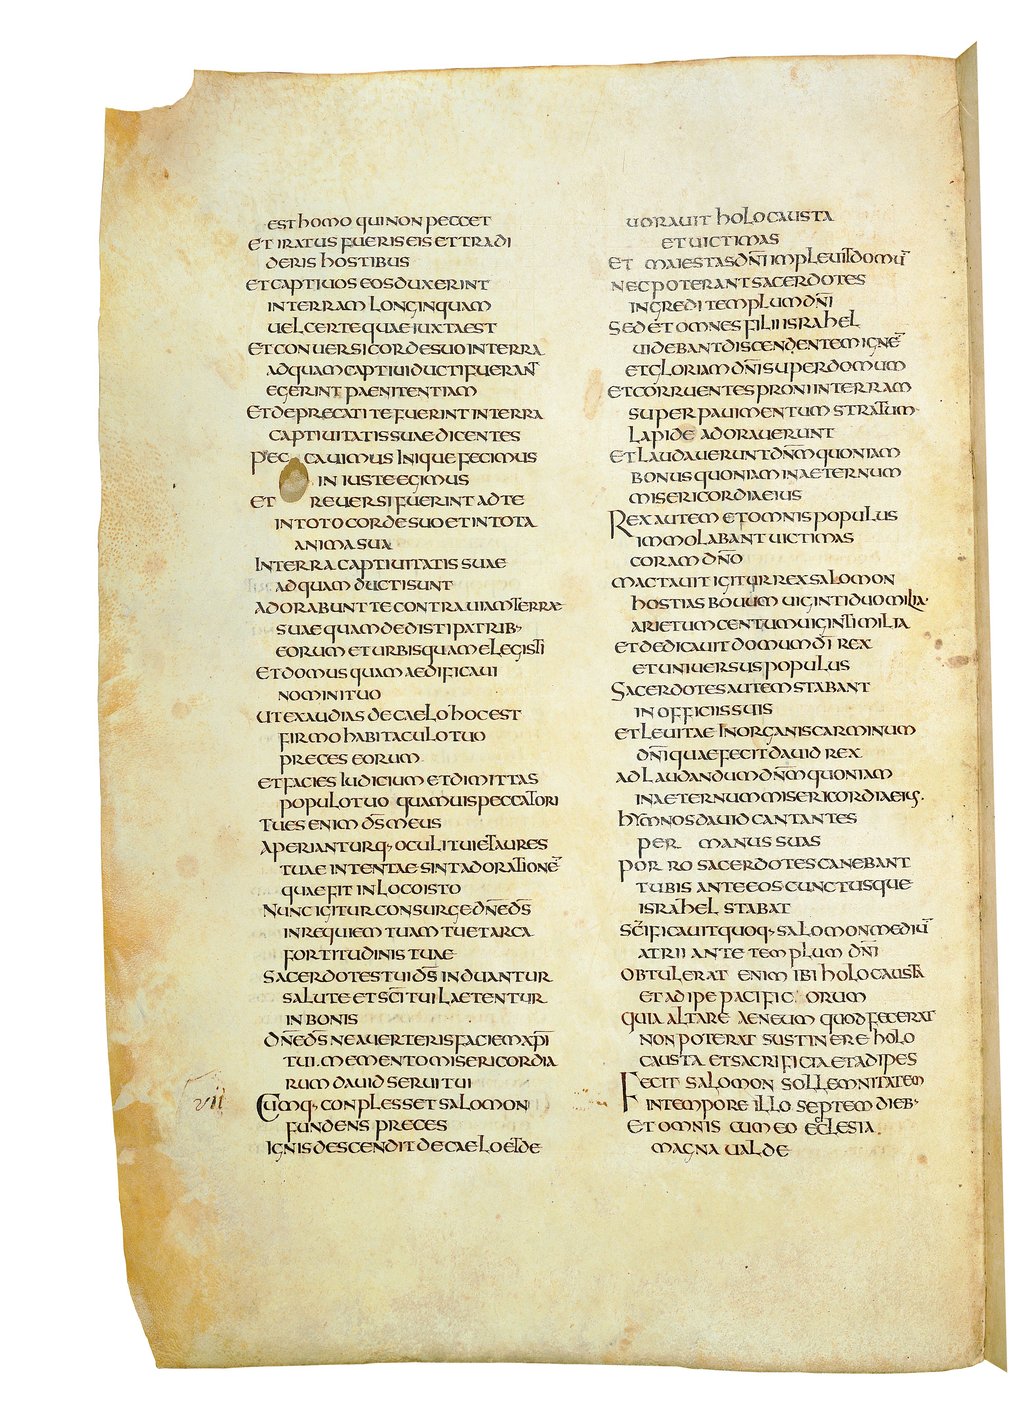 EST homo QUI NON PECCET
ET IRATUS FUERIS EIS ET TRADI
DERIS HOSTIBUS
ET CAPTIUOS EOS DUXERINT
IN TERRAM LONGINQUAM
UEL CERTE QUAE IUXTA EST
ET CONUERSI CORDE SUO IN TERRA
AD QUAM CAPTIUI DUCTI FUERANT
EGERINT PAENITENTIAM
ET DEPRECATI TE FUERINT IN TERRA
CAPTIUITATIS SUAE DICENTES
PECCAUIMUS INIQUE FECIMUS
INIUSTE EGIMUS
ET REUERSI FUERINT AD TE
IN TOTO CORDE SUO ET IN TOTA
ANIMA SUA
IN TERRA CAPTIUITATIS SUAE
AD QUAM DUCTI SUNT
ADORABUNT TE CONTRA UIAM TERRAE
SUAE QUAM DEDISTI PATRIB,
EORUM ET URBIS QUAM ELEGISTI
ET DOMUS QUAM AEDIFICAUI
NOMINI TUO
UT EXAUDIAS DE CAELO HOC EST
FIRMO HABITACULO TUO
PRECES EORUM
ET FACIES IUDICIUM ET DIMITTAS
POPULO TUO QUAMUIS PECCATORI
TU ES ENIM DS̄ MEUS
APERIANTURQ, OCULI TUI ET AURES
TUAE INTENTAE SINT ADORATIONĒ
QUAE FIT IN LOCO ISTO
NUNC IGITUR CONSURGE DN̄E DS̄
IN REQUIEM TUAM TU ET ARCA
FORTITUDINIS TUAE
SACERDOTES TUI DS̄ INDUANTUR
SALUTE ET SC̄I TUI LAETENTUR
IN BONIS
DN̄E DS̄ NE AUERTERIS FACIEM XP̄I
TUI. MEMENTO MISERICORDIA
RUM DAUID SERUI TUI
vii CUMQ, CONPLESSET SALOMON
FUNDENS PRECES
IGNIS DESCENDIT DE CAELO ET DE
UORAUIT HOLOCAUSTA
ET UICTIMAS
ET MAIESTAS DN̄I IMPLEUIT DOMŪ
NEC POTERANT SACERDOTES
INGREDI TEMPLUM DN̄I
SED ET OMNES FILII ISRAHEL
UIDEBANT DISCENDENTEM IGNĒ
ET GLORIAM DN̄I SUPER DOMUM
ET CORRUENTES PRONI IN TERRAM
SUPER PAUIMENTUM STRATUM
LAPIDE ADORAUERUNT
ET LAUDAUERUNT DN̄M QUONIAM
BONUS QUONIAM IN AETERNUM
MISERICORDIA EIUS
REX AUTEM ET OMNIS POPULUS
IMMOLABANT UICTIMAS
CORAM DN̄O
MACTAUIT IGITUR REX SALOMON
HOSTIAS BOUUM UIGINTI DUO MILIA
ARIETUM CENTUM UIGINTI MILIA
ET DEDICAUIT DOMUM DĪ REX
ET UNIUERSUS POPULUS
SACERDOTES AUTEM STABANT
IN OFFICIIS SUIS
ET LEUITAE IN ORGANIS CARMINUM
DN̄I QUAE FECIT DAUID REX
AD LAUDANDUM DN̄M QUONIAM
IN AETERNUM MISERICORDIA EIUS.
HYMNOS DAUID CANTANTES
PER MANUS SUAS
PORRO SACERDOTES CANEBANT
TUBIS ANTE EOS CUNCTUSQUE
ISRAHEL STABAT
SC̄IFICAUIT QUOQ, SALOMON MEDIŪ
ATRII ANTE TEMPLUM DN̄I
OBTULERAT ENIM IBI HOLOCAUSTA
ET ADIPE PACIFICORUM
QUIA ALTARE AENEUM QUOD FECERAT
NON POTERAT SUSTINERE HOLO
CAUSTA ET SACRIFICIA ET ADIPES
FECIT SALOMON SOLLEMNITATEM
IN TEMPORE ILLO SEPTEM DIEB,
ET OMNIS CUM EO ECLESIA.
MAGNA UALDE